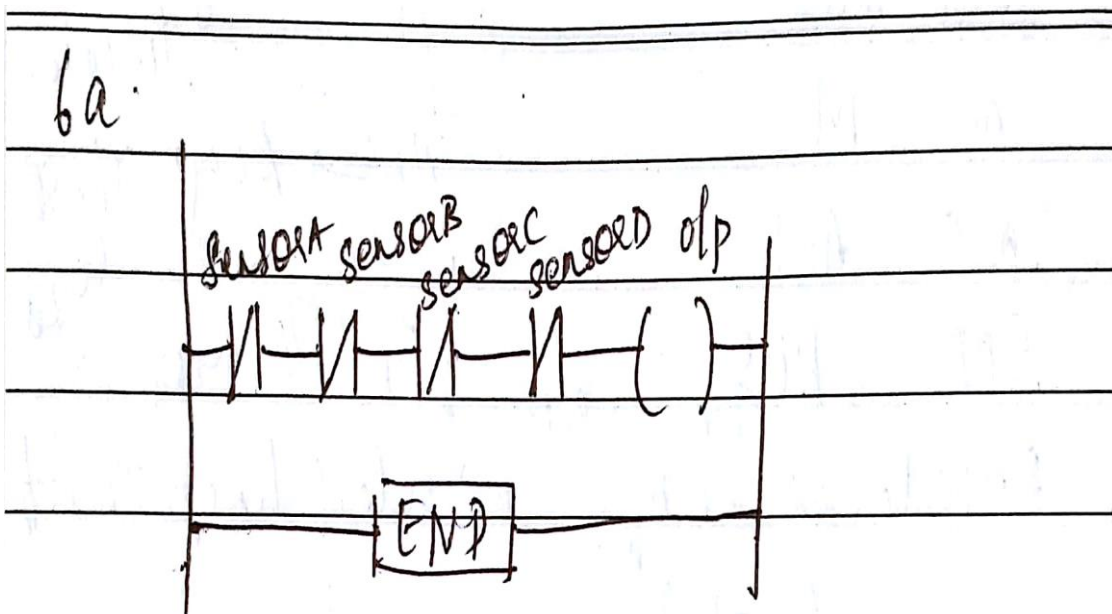 6a.
sensorA sensorB sensorC sensorD o/p
END